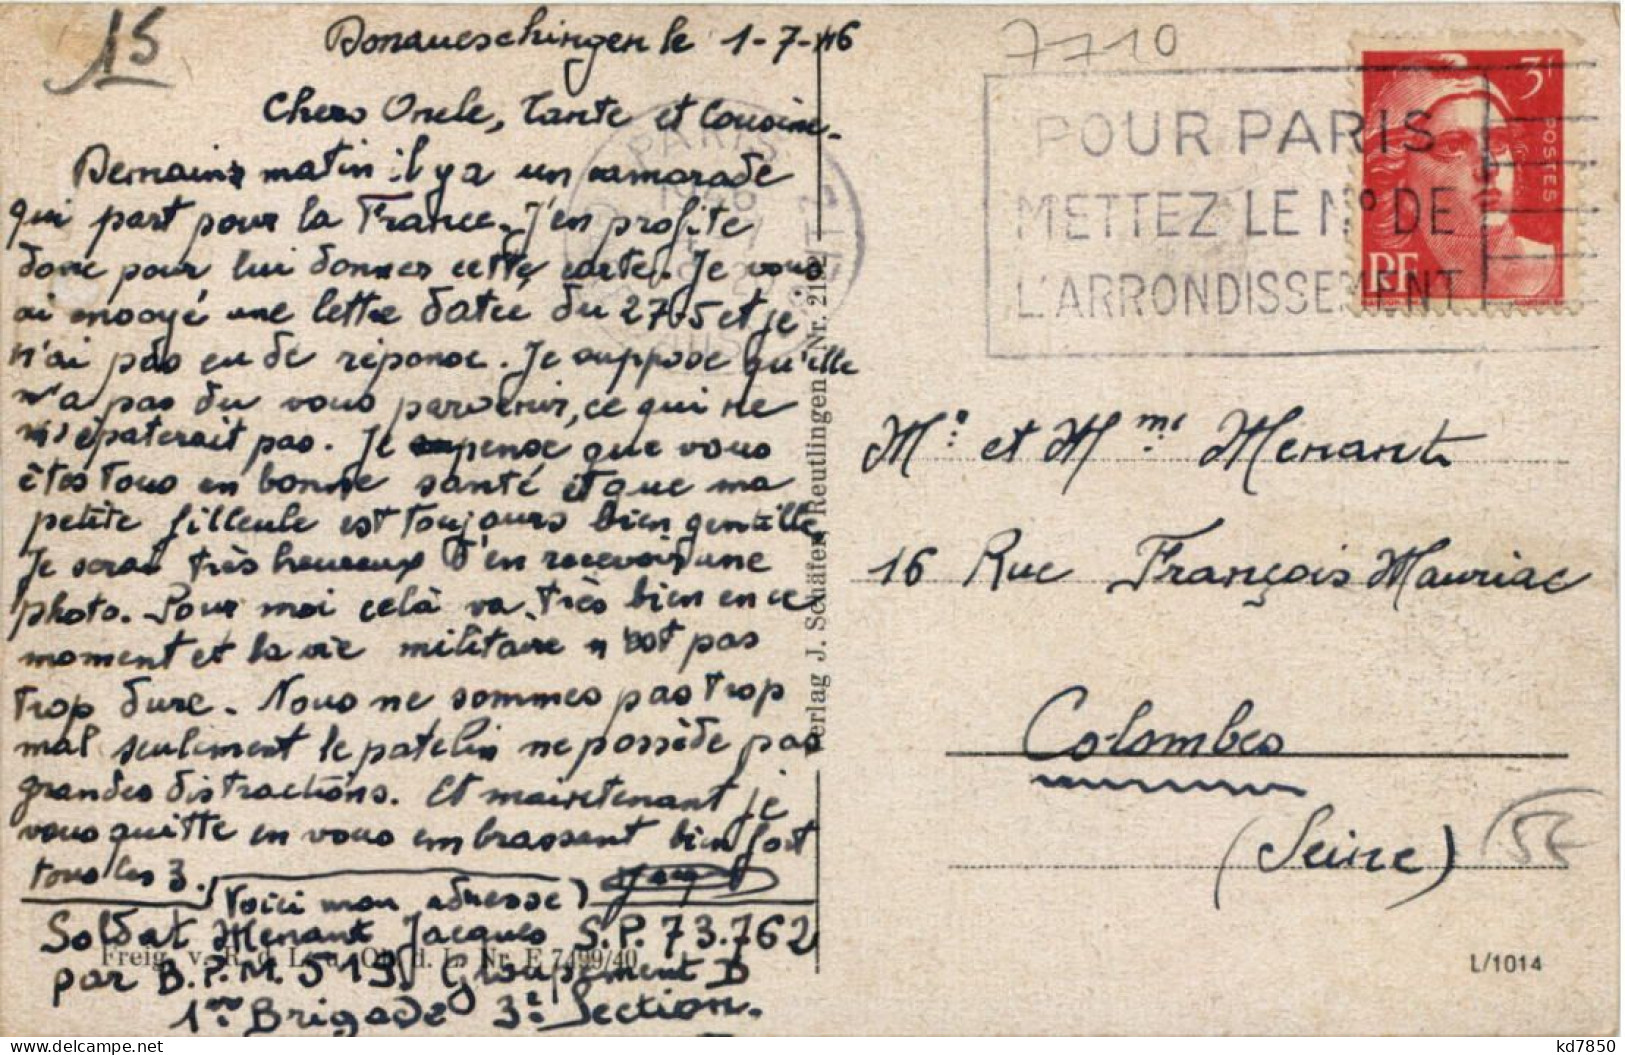 15
Donaueschingen le 1-7-46
Chers Oncle, Tante et Cousine.
Demain matin il y a un camarade
qui part pour la France. J'en profite
donc pour lui donner cette carte. Je vous
ai envoyé une lettre datée du 27-5 et je
n'ai pas eu de réponse. Je suppose qu'elle
n'a pas du vous parvenir, ce qui ne
m'épaterait pas. Je pense que vous
êtes tous en bonne santé et que ma
petite filleule est toujours bien gentille
Je serai très heureux d'en recevoir une
photo. Pour moi celà va très bien en ce
moment et la vie militaire n'est pas
trop dure. Nous ne sommes pas trop
mal seulement le patelin ne possède pas
grandes distractions. Et maintenant je
vous quitte en vous embrassant bien fort
tous les 3.
(Voici mon adresse)
Soldat Menant Jacques S.P. 73.762
par B.P.M. 519 Groupement D
1ère Brigade 3e Section.
Freig. v. R. d. L. u. Ob. d. L. Nr. E 7499/40
Verlag J. Schäfer, Reutlingen Nr. 2182
PARIS
7710
POUR PARIS
METTEZ LE N° DE
L'ARRONDISSEMENT
3F
POSTES
RF
Mr et Mme Menant
16 Rue François Mauriac
Colombes
(Seine)
L/1014
kd7850